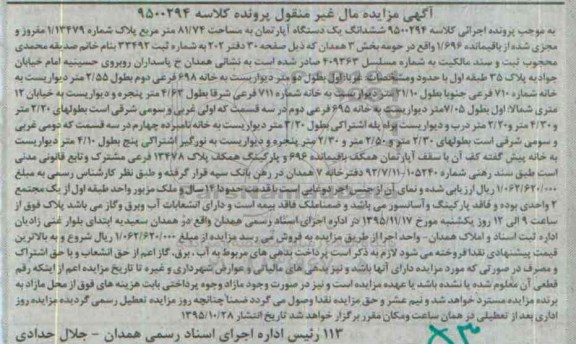 آگهی مزایده مال غیر منقول پرونده کلاسه ۹۵۰۰۲۹۴
به موجب پرونده اجرائی کلاسه ۹۵۰۰۲۹۴ ششدانگ یک دستگاه آپارتمان به مساحت ۸۱/۷۴ متر مربع پلاک شماره ۱/۱۳۴۷۹ مفروز و
مجزی شده از باقیمانده ۱/۶۹۶ واقع در حومه بخش ۳ همدان که ذیل صفحه ۳۰ دفتر ۲۰۲ به شماره ثبت ۳۳۴۹۲ بنام خانم صدیقه محمدی
محجوب ثبت و سند مالکیت به شماره مسلسل ۴۰۹۳۶۳ صادر شده است به نشانی همدان خ پاسداران روبروی حسینیه امام خیابان
جوادیه پلاک ۳۵ طبقه اول با حدود ومشخصات بطول دو متر دیواریست به خانه ۶۹۸ فرعی دوم بطول ۲/۵۵ متر دیواریست به
خانه شماره ۷۱۰ فرعی جنوبا بطول ۲۱/۱۰ متر دیواریست به خانه شماره ۷۱۱ فرعی شرقا بطول ۴/۶۳ متر پنجره و دیواریست به خیابان ۱۲
متری شمالا اول بطول ۷/۰۵ متر دیواریست به خانه ۶۹۵ فرعی دوم در سه قسمت که اولی غربی و سومی شرقی است بطولهای ۲/۲۰ متر
و ۴/۳۰ متر و ۲/۲۰ متر درب و دیواریست به راه پله اشتراکی بطول ۳/۲۰ متر دیواریست به خانه نامبرده چهارم در سه قسمت که دومی غربی
و سومی شرقی است بطولهای ۲/۳۰ متر و ۲/۵۰ متر و ۲/۳۰ متر پنجره و دیواریست به نورگیر اشتراکی پنج بطول ۴/۱۰ متر دیواریست
به خانه پیش گفته کف آن با سقف آپارتمان همکف باقیمانده ۶۹۶ و پارکینگ همکف پلاک ۱۳۴۷۸ فرعی مشترک و تابع قانونی مدنی
است طبق سند رهنی شماره ۱۰۵۲۴۰-۹۲/۷/۱۱ دفترخانه ۷ همدان در رهن بانک سپه قرار گرفته و طبق نظر کارشناس رسمی به مبلغ
۱/۰۶۲/۶۲۰/۰۰۰ ریال ارزیابی شده و نمای آن از جنس آجر دوغابی است با قدمت حدودا ۱۶ سال و ملک مزبور واحد طبقه اول از یک مجتمع
۲ واحدی بوده و فاقد پارکینگ و آسانسور می باشد و ضمنا ملک فاقد بیمه است و دارای انشعابات آب وبرق وگاز می باشد پلاک فوق از
ساعت ۹ الی ۱۲ روز یکشنبه مورخ ۱۳۹۵/۱۱/۱۷ در اداره اجرای اسناد رسمی همدان واقع در همدان سعیدیه ابتدای بلوار غنی زادیان
اداره ثبت اسناد و املاک همدان- واحد اجرا از طریق مزایده به فروش می رسد مزایده از مبلغ ۱/۰۶۲/۶۲۰/۰۰۰ ریال شروع و به بالاترین
قیمت پیشنهادی نقدا فروخته می شود لازم به ذکر است پرداخت بدهی های مربوط به آب، برق، گاز اعم از حق انشعاب و یا حق اشتراک
و مصرف در صورتی که مورد مزایده دارای آنها باشد و نیز بدهی های مالیاتی و عوارض شهرداری و غیره تا تاریخ مزایده اعم از اینکه رقم
قطعی آن معلوم شده یا نشده باشد یا عهده مزایده است و نیز در صورت وجود مازاد وجوه پرداختی بابت هزینه های فوق از محل مازاد به
برنده مزایده مسترد خواهد شد و نیم عشر و حق مزایده نقدا وصول می گردد ضمنا چنانچه روز مزایده تعطیل رسمی گردیده مزایده روز
اداری بعد از تعطیلی در همان ساعت ومکان مقرر برگزار خواهد شد تاریخ انتشار ۱۳۹۵/۱۰/۲۸
۱۱۳ رئیس اداره اجرای اسناد رسمی همدان - جلال حدادی